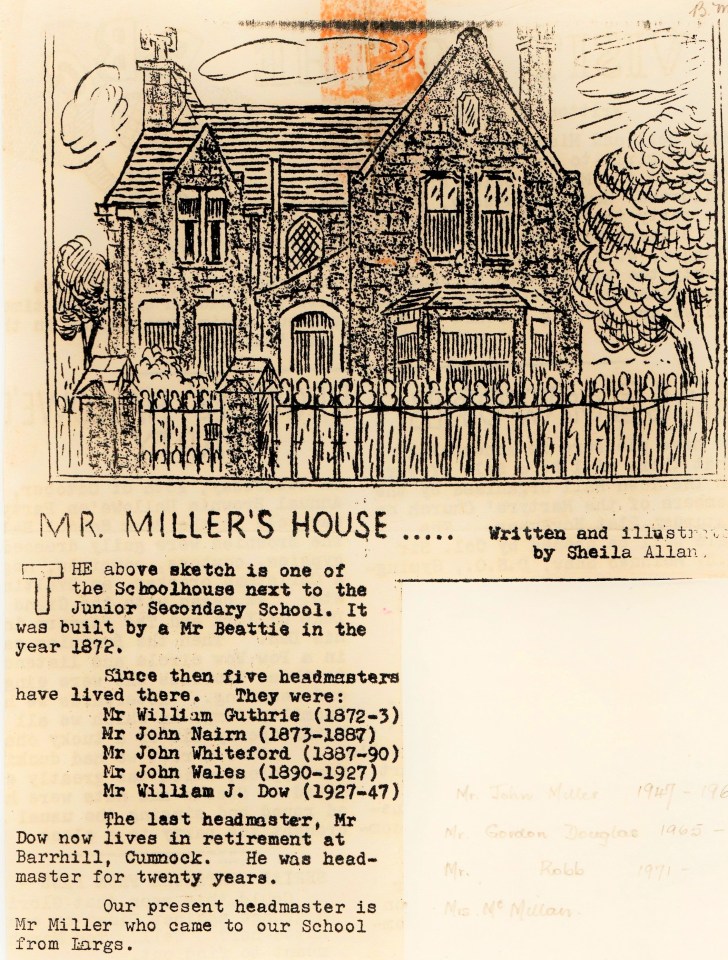 MR. MILLER'S HOUSE .....
Written and illustr
by Sheila Allan.
THE above sketch is one of
the Schoolhouse next to the
Junior Secondary School. It
was built by a Mr Beattie in the
year 1872.
Since then five headmasters
have lived there. They were:
Mr William Guthrie (1872-3)
Mr John Nairn (1873-1887)
Mr John Whiteford (1887-90)
Mr John Wales (1890-1927)
Mr William J. Dow (1927-47)
The last headmaster, Mr
Dow now lives in retirement at
Barrhill, Cumnock. He was head-
master for twenty years.
Our present headmaster is
Mr Miller who came to our School
from Largs.
Mr. John Miller 1947 - 196
Mr. Gordon Douglas 1965 -
Mr. Robb 1971 -
McMillan.